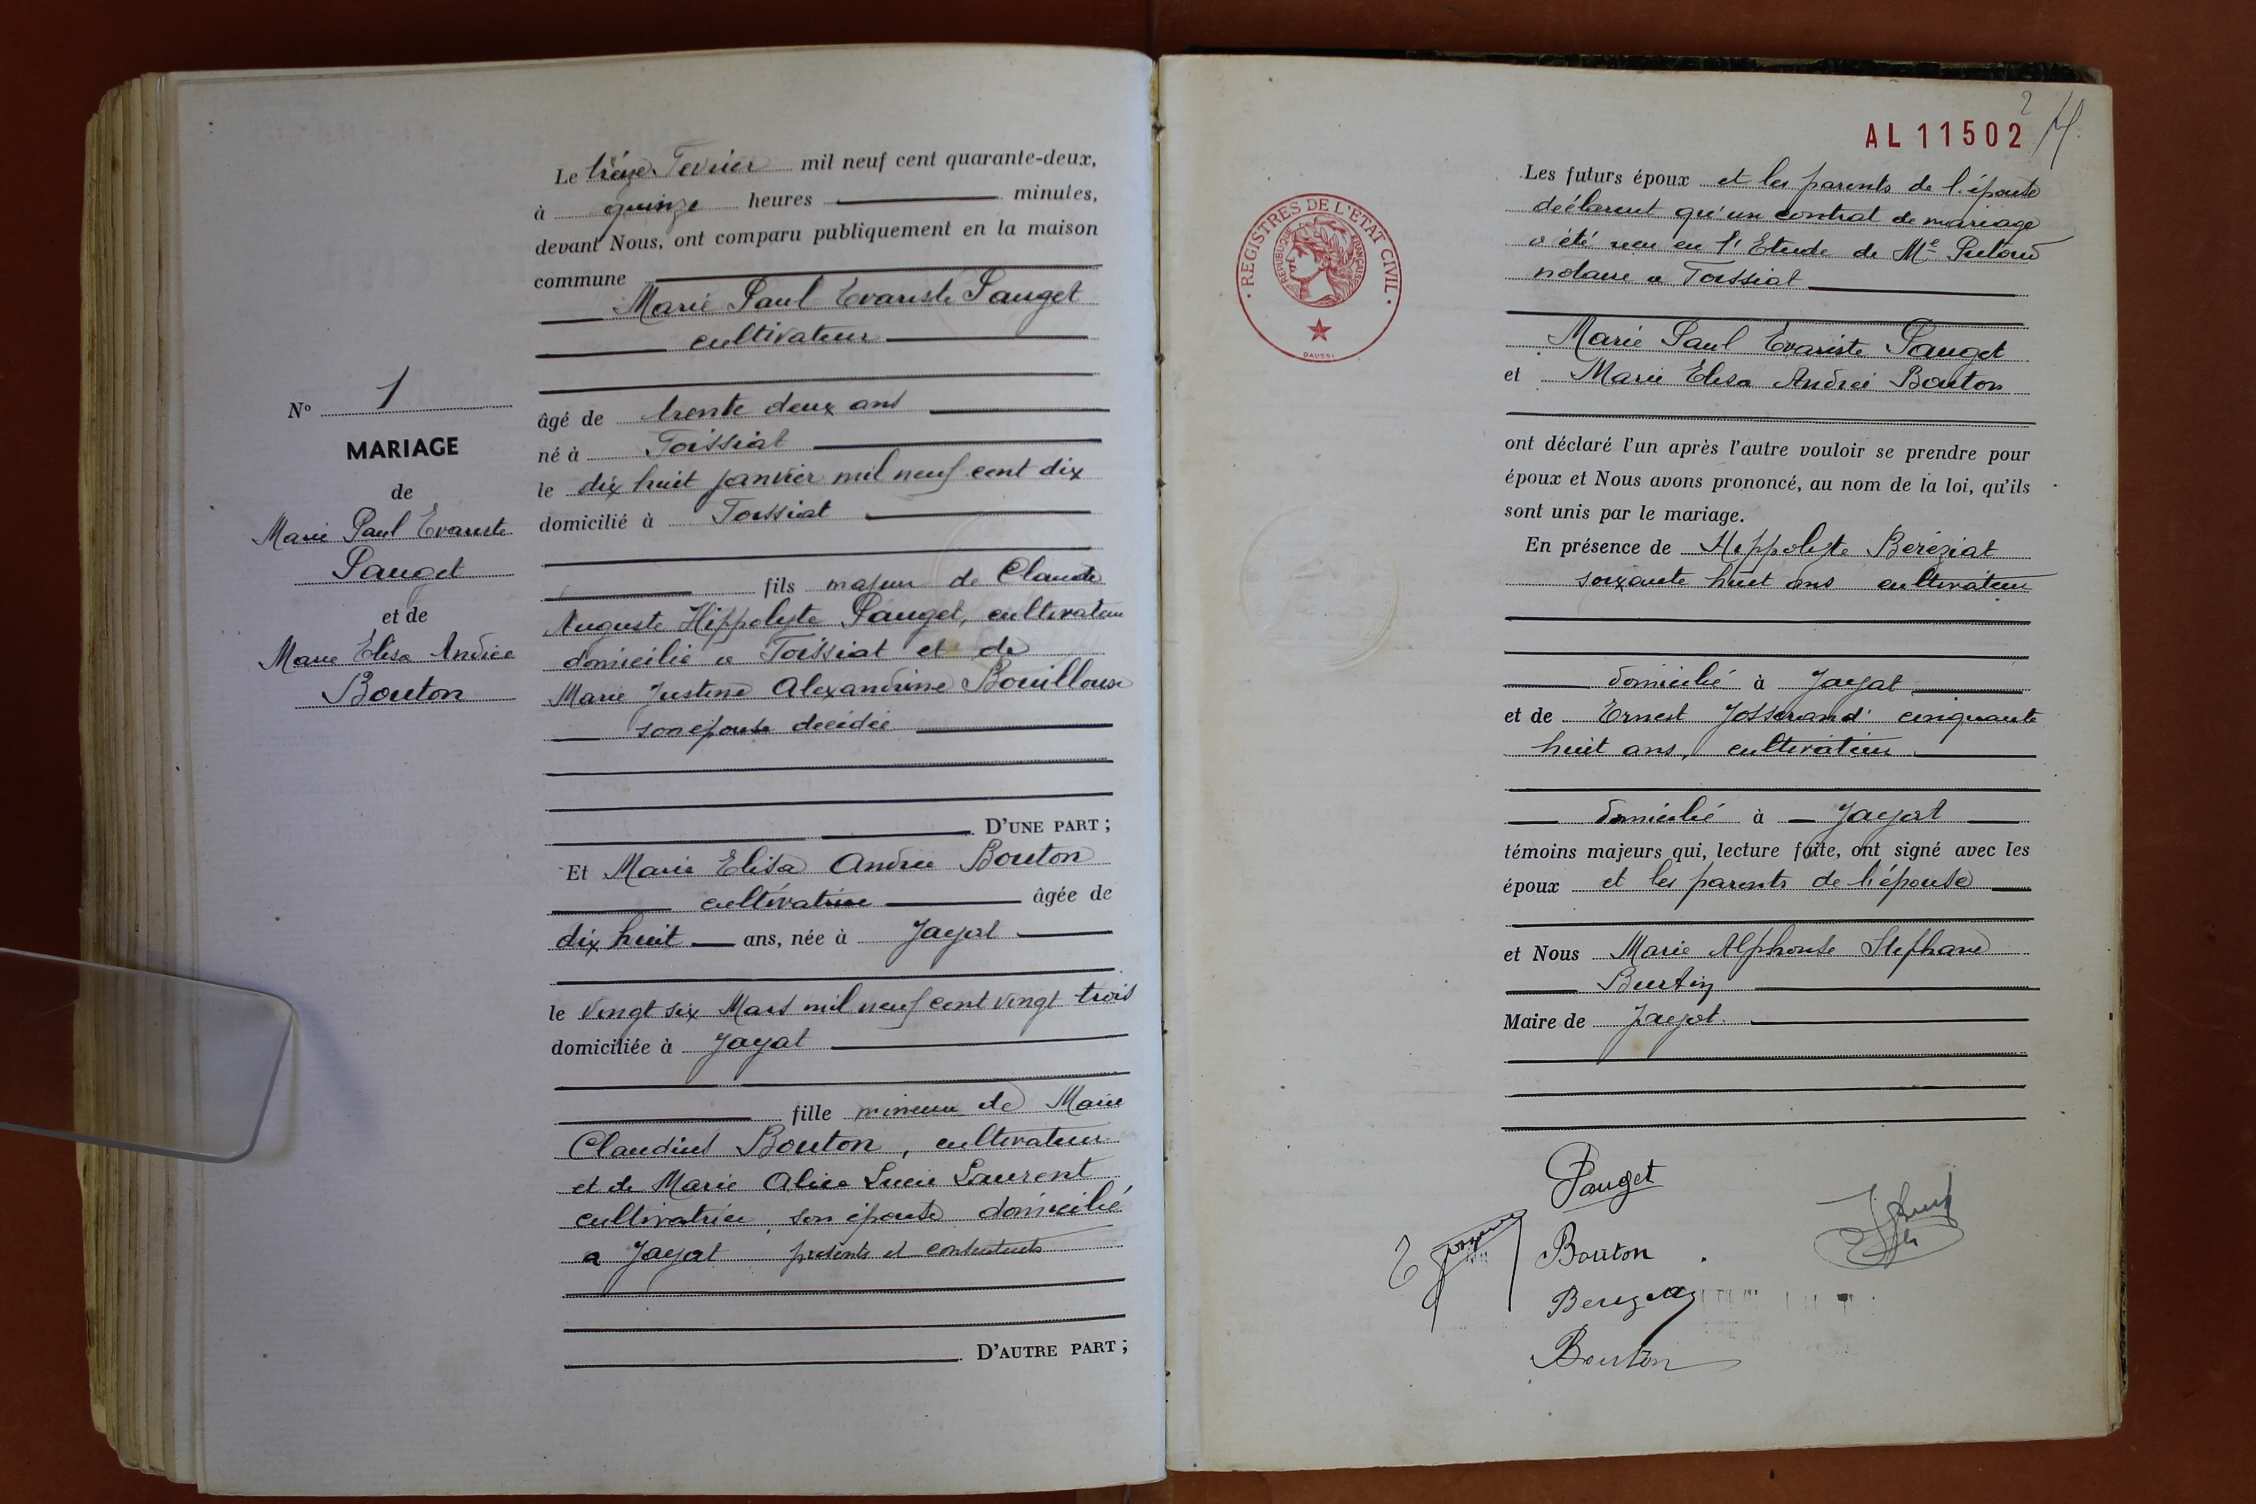 Le treize Fevrier mil neuf cent quarante-deux,
à quinze heures minutes,
devant Nous, ont comparu publiquement en la maison
commune
Marie Paul Evariste Pauget
cultivateur
âgé de trente deux ans
né à Foissiat
le dix huit janvier mil neuf cent dix
domicilié à Foissiat
fils majeur de Claude
Auguste Hippolyte Pauget, cultivateur
domicilié a Foissiat et de
Marie Justine Alexandrine Bouilloux
son épouse décédée
D'UNE PART ;
Et Marie Elisa Andrée Bouton
cultivatrice âgée de
dix huit ans, née à Jayat
le vingt six Mars mil neuf cent vingt trois
domiciliée à Jayat
fille mineure de Marie
Claudius Bouton, cultivateur
et de Marie Alice Lucie Laurent
cultivatrice son épouse domicilié
a Jayat présents et consentents
D'AUTRE PART ;
N° 1
MARIAGE
de
Marie Paul Evariste
Pauget
et de
Marie Elisa Andrée
Bouton
2
AL 11502
REGISTRES DE L'ÉTAT CIVIL
RÉPUBLIQUE FRANÇAISE
DAUSSI
Les futurs époux et les parents de l'épouse
déclarent qu'un contrat de mariage
a été reçu en l'Etude de Me
notaire a Foissiat
Marie Paul Evariste Pauget
et Marie Elisa Andrée Bouton
ont déclaré l'un après l'autre vouloir se prendre pour
époux et Nous avons prononcé, au nom de la loi, qu'ils
sont unis par le mariage.
En présence de Hippolyte Béréziat
soixante huit ans cultivateur
domicilié à Jayat
et de Ernest Josserand cinquante
huit ans, cultivateur
domicilié à Jayat
témoins majeurs qui, lecture faite, ont signé avec les
époux et les parents de l'épouse
et Nous Marie Alphonse Stéphane
Burtin
Maire de Jayat
Pauget
Bouton
Bereziat
Bouton